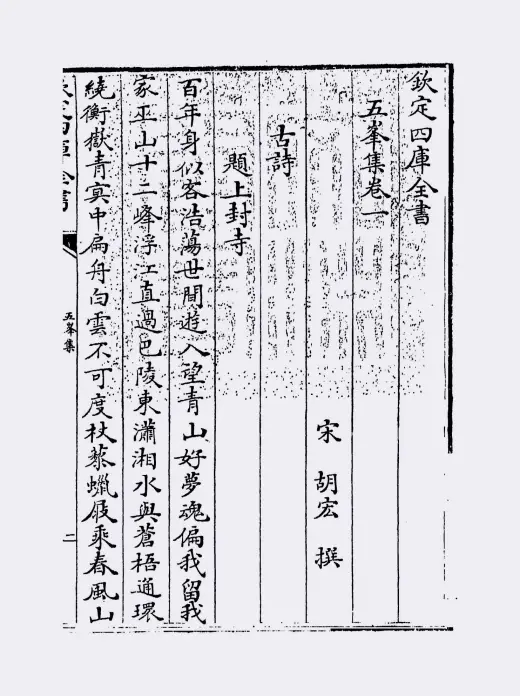 欽定四庫全書
五峯集卷一
宋 胡宏 撰
古詩
題上封寺
百年身似客浩蕩世間遊人望青山好夢魂偏我留我
家巫山十二峰浮江直過巴陵東瀟湘水與蒼梧通環
繞衡嶽青㝠中扁舟白雲不可度杖藜蠟屐乘春風山
欽定四庫全書
五峯集
二